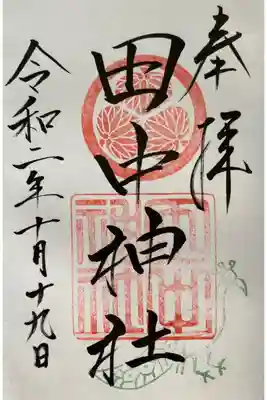 奉拝
田中神社
令和二年十月十九日